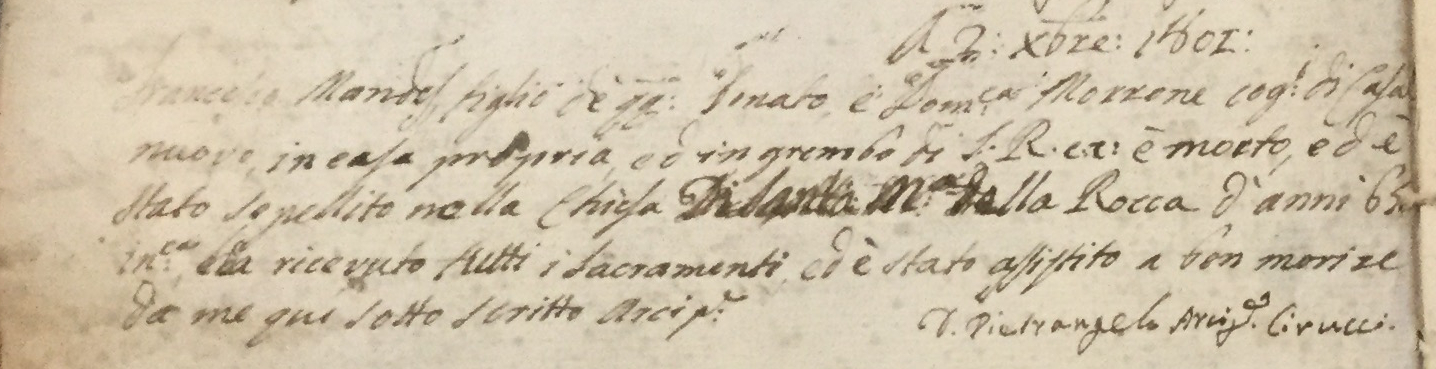 A 2: Xbre: 1801:
Francesco Mandes, figlio de qq: Donato, e Dom:ca Morrone cog:i di Casa
nuovo, in casa propria, ed in grembo di S. R. ca: è morto, ed è
stato sepellito nella Chiesa Di Santa M:a della Rocca d'anni 65
in:ca, età ricevuto tutti i sacramenti, ed è stato assistito a ben morire
da me qui sotto scritto Arcip:e
D. Pietrangelo Arcip:e Cirucci.